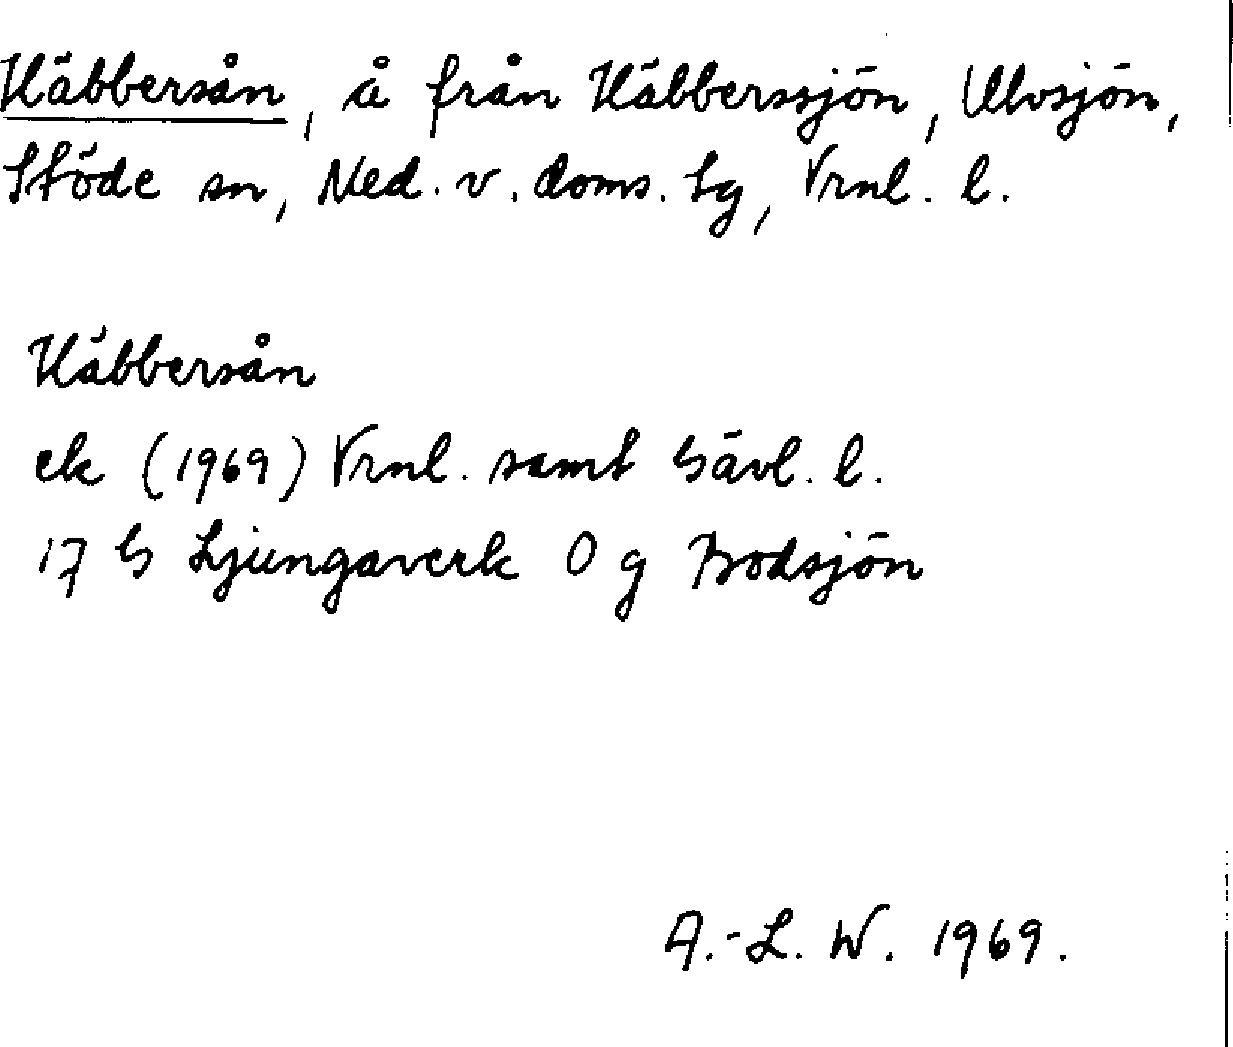 Häbbersån, å från Häbberssjön, Ulvsjön,
Stöde sn, Med. v. doms. tg, Vrnl. l.
Häbbersån
ek (1969) Vrnl. samt Gävl. l.
17 G Ljungaverk O g Bodsjön
A.-L. W. 1969.